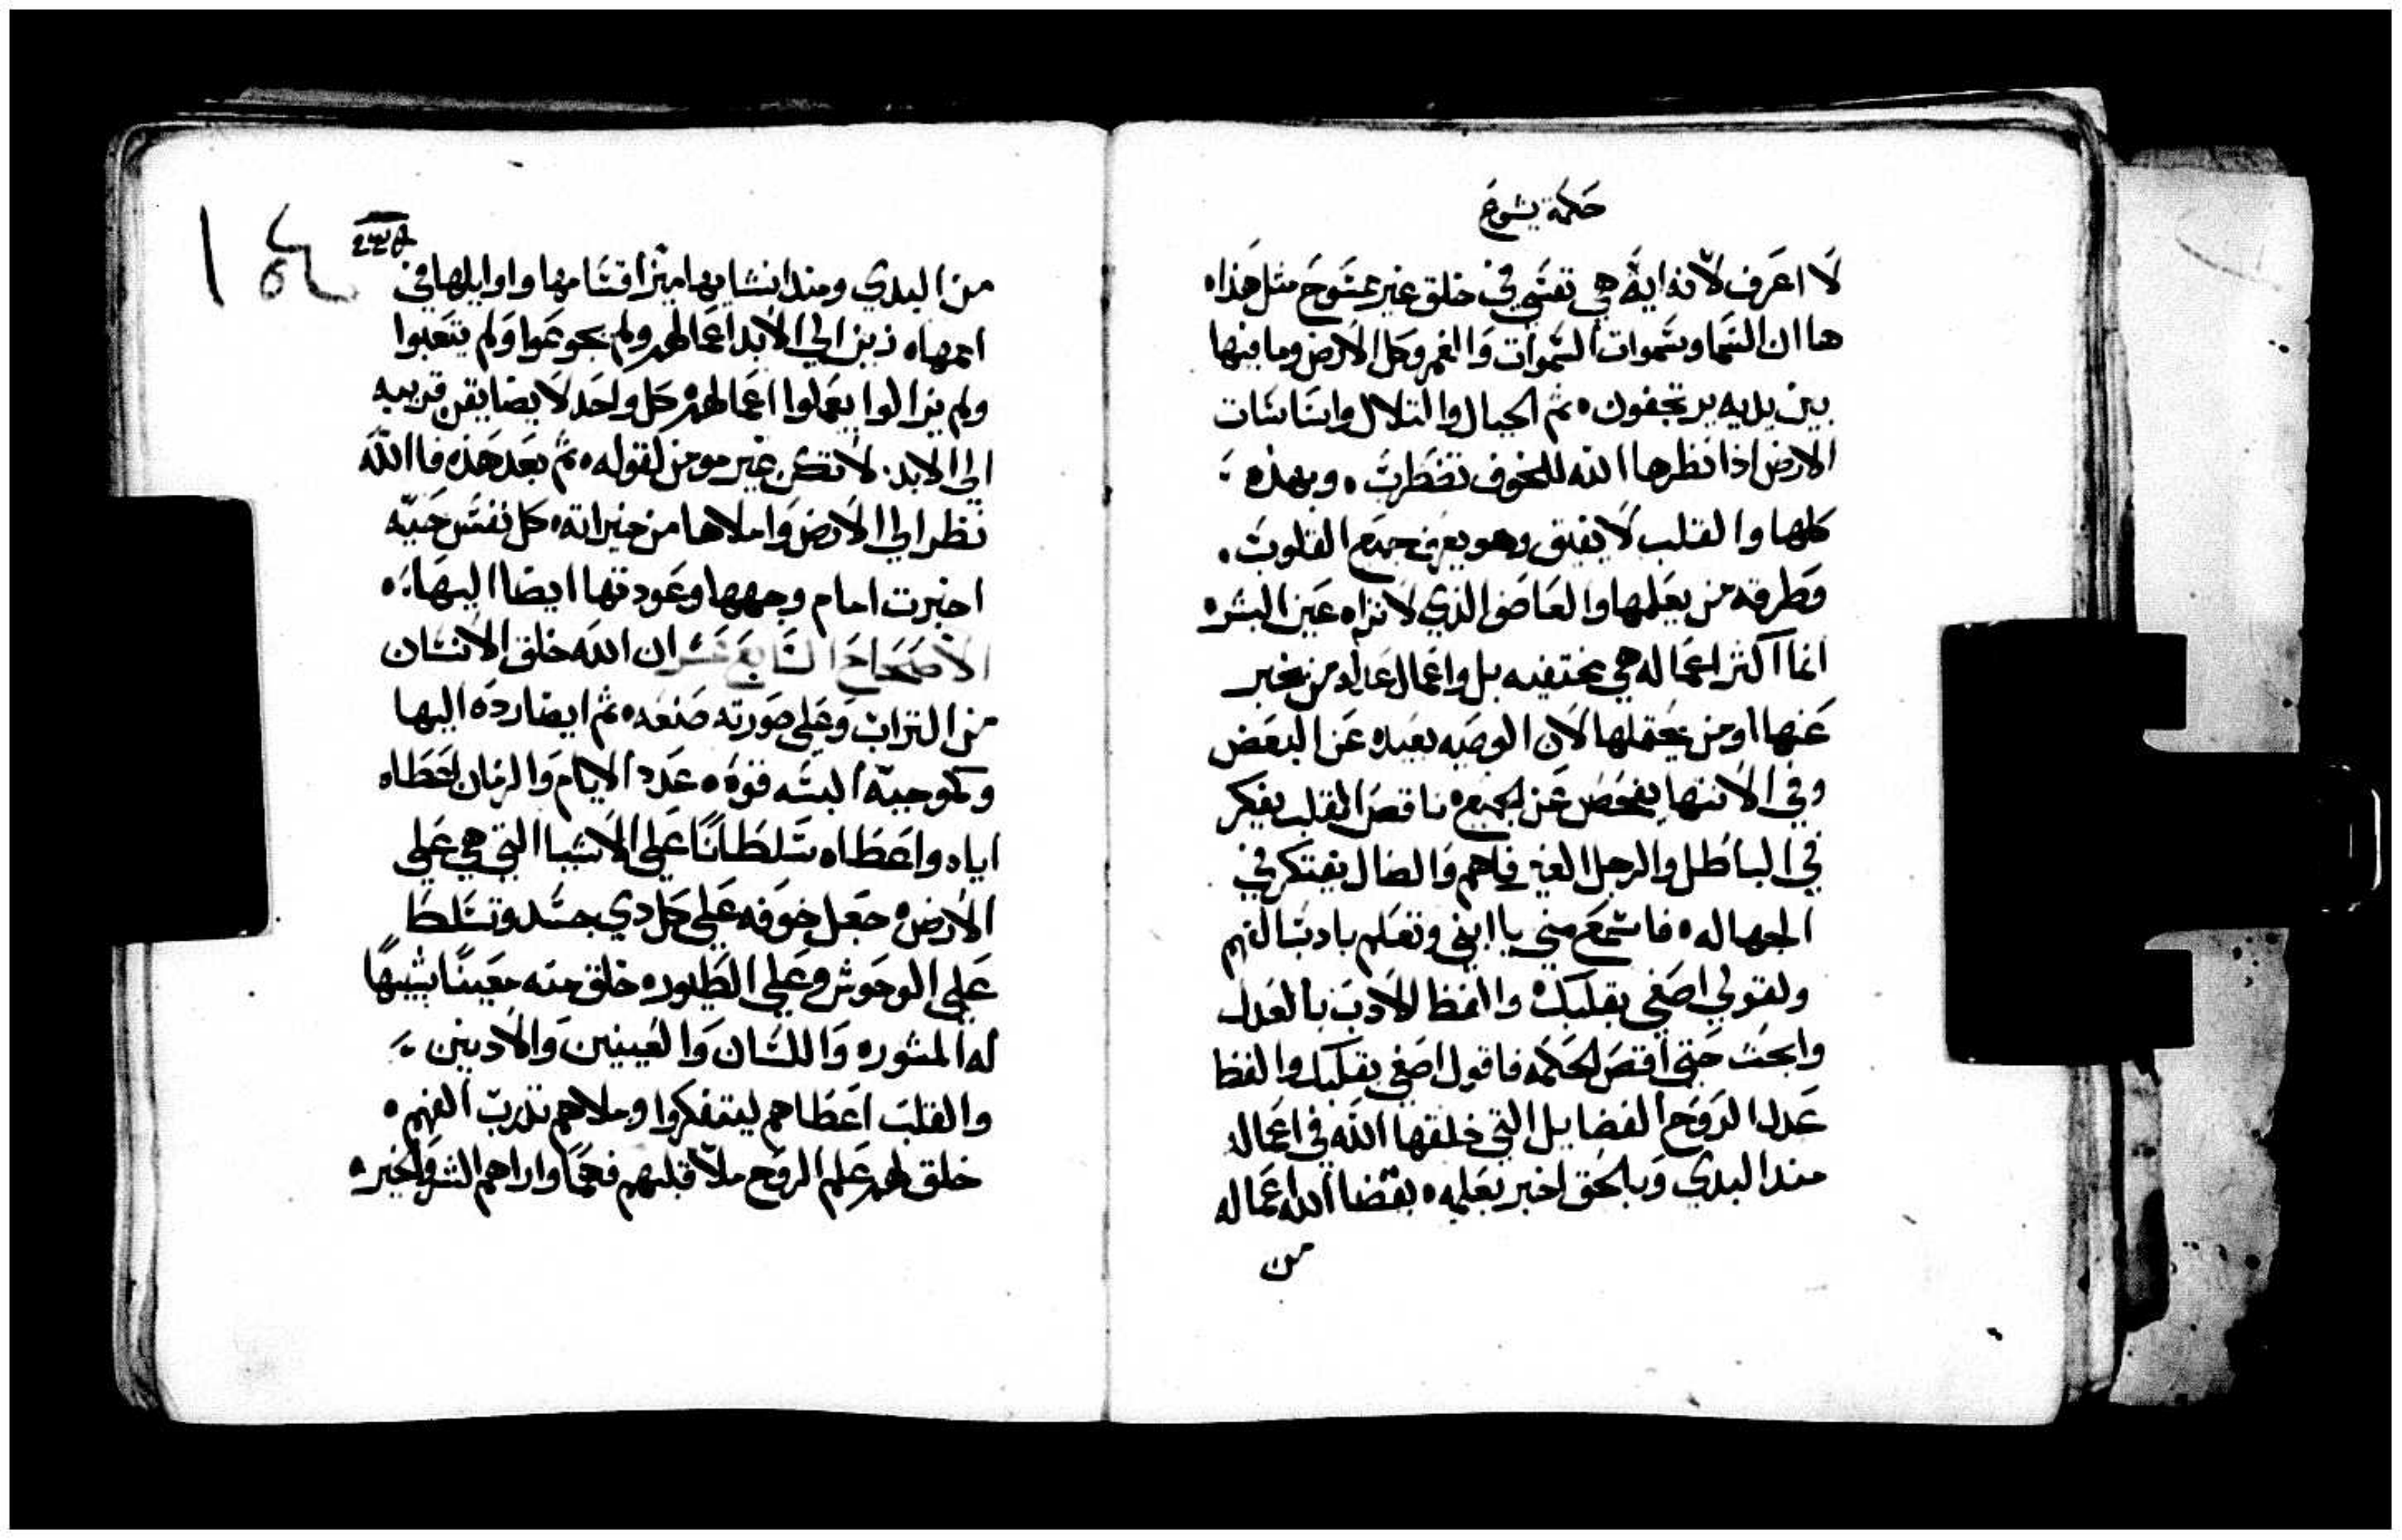 حكمة يشوع
لا اعرف لانه اية هي نفسي في خلق غير ممسوح مثل هذا.
ها ان السما وسموات السموات والغمر وكل الارض وما فيها
بين يديه يرتجفون. ثم الجبال والتلال واساسات
الارض اذا نظرها الله للخوف تفطرت. وبهذه
كلها والقلب لا يفيق وهو يعرف جميع القلوب.
وطرقه من يعلمها والعاصف الذي لا تراه عين البشر.
انما اكثر اعماله هي مختفيه بل واعمال عدله من يخبر
عنها او من يحتملها لان الوصيه بعيده عن البعض
وفي الانتها يفحص عن الجميع. ناقص القلب يفكر
في الباطل والرجل الغير فاهم والضال يفتكر في
الجهاله. فاسمع مني يا ابني وتعلم بادب الفهم
ولقولي اصغي بقلبك. والفظ الادب بالعدل
وابحث حتي اقص الحكمه فاقول اصغي بقلبك والفظ
عدل الروح الفضايل التي خلقها الله في اعماله
مند البدي وبالحق اخبر بعلمه. بقضا الله اعماله
من
من البدي ومند انشايها ميز اقسامها واوايلها في
اممها. زين الي الابد اعمالهم ولم يجوعوا ولم يتعبوا
ولم يزالوا يعملوا اعمالهم كل واحد لا يضايقن قريبه
الي الابد. لا تكن غير مومن لقوله. ثم بعد هذه فالله
نظر الي الارض واملاها من خيراته. كل نفس حيه
اخبرت امام وجهها وعودتها ايضا اليها.
الاصحاح السابع عشر ان الله خلق الانسان
من التراب وعلي صورته صنعه. ثم ايضا رده اليها
وكموجبه البسه قوه. عدد الايام والزمان اعطاه
اياه واعطاه سلطانا علي الاشيا التي هي علي
الارض. جعل خوفه علي كل دي جسد وتسلط
علي الوحوش وعلي الطيور. خلق منه معينا شبيها
له المشوره واللسان والعينين والادنين
والقلب اعطاهم ليتفكروا وملاهم تدرب الفهم.
خلق لهم علم الروح ملا قلبهم فهما واراهم الشر والخير.